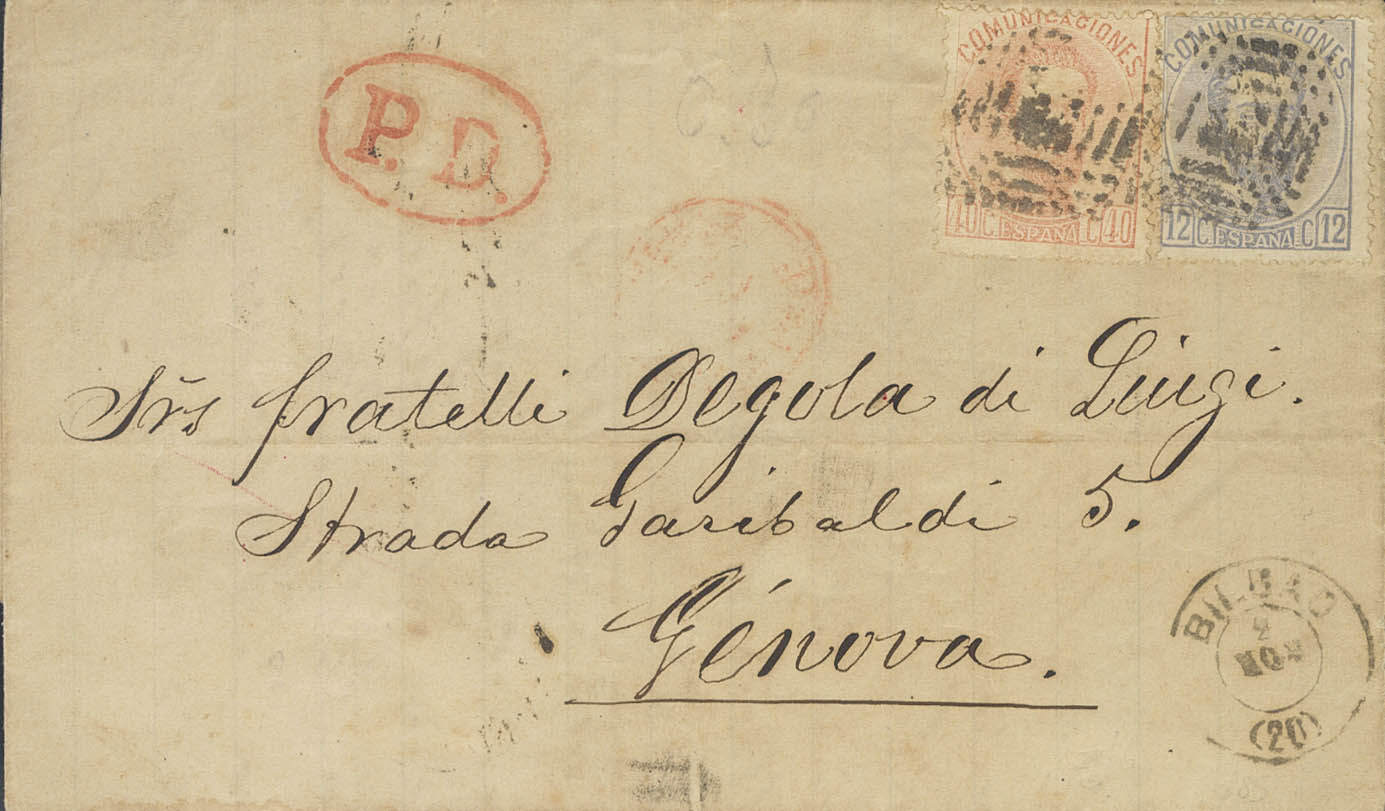 COMUNICACIONES
40 C. ESPAÑA C 40
COMUNICACIONES
12 C. ESPAÑA C 12
P. D.
Srs fratelli Degola di Luigi.
Strada Garibaldi 5.
Génova.
BILBAO
2
NOV
(20)